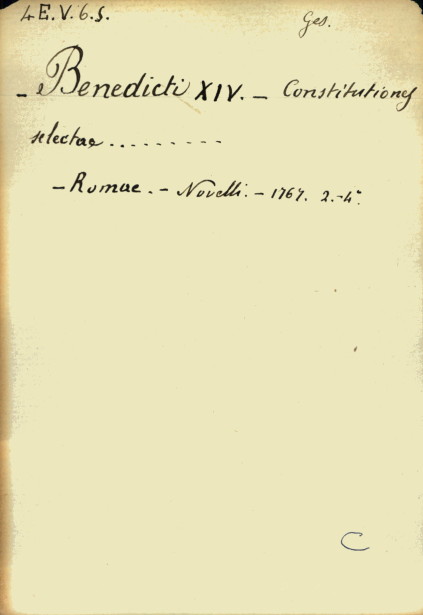 4 E.V.6.5. Ges.
- Benedicti XIV. - Constitutiones
selectae .........
- Romae. - Novelli. - 1767. 2.-4°.
C